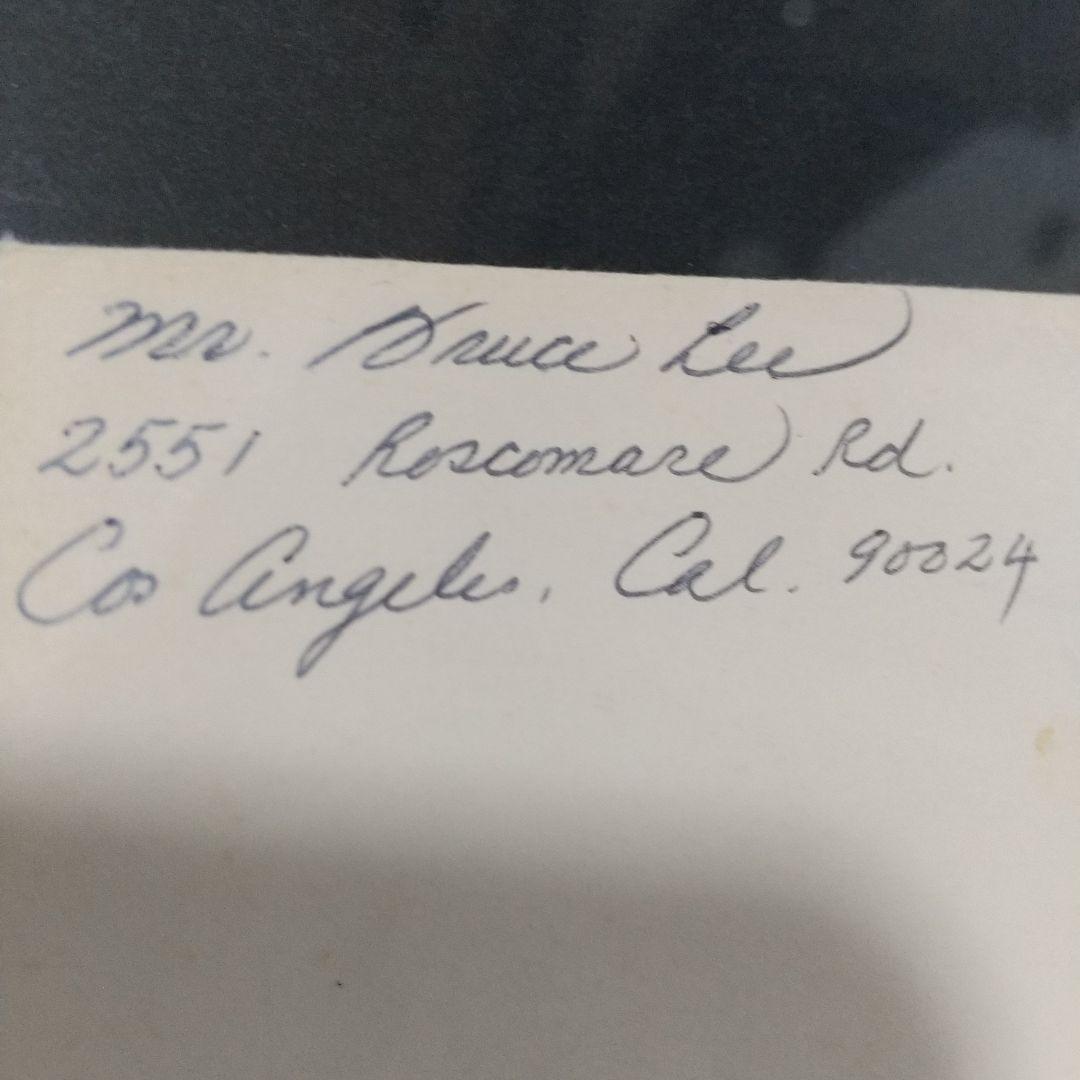 Mr. Bruce Lee
2551 Roscomare Rd.
Los Angeles, Cal. 90024